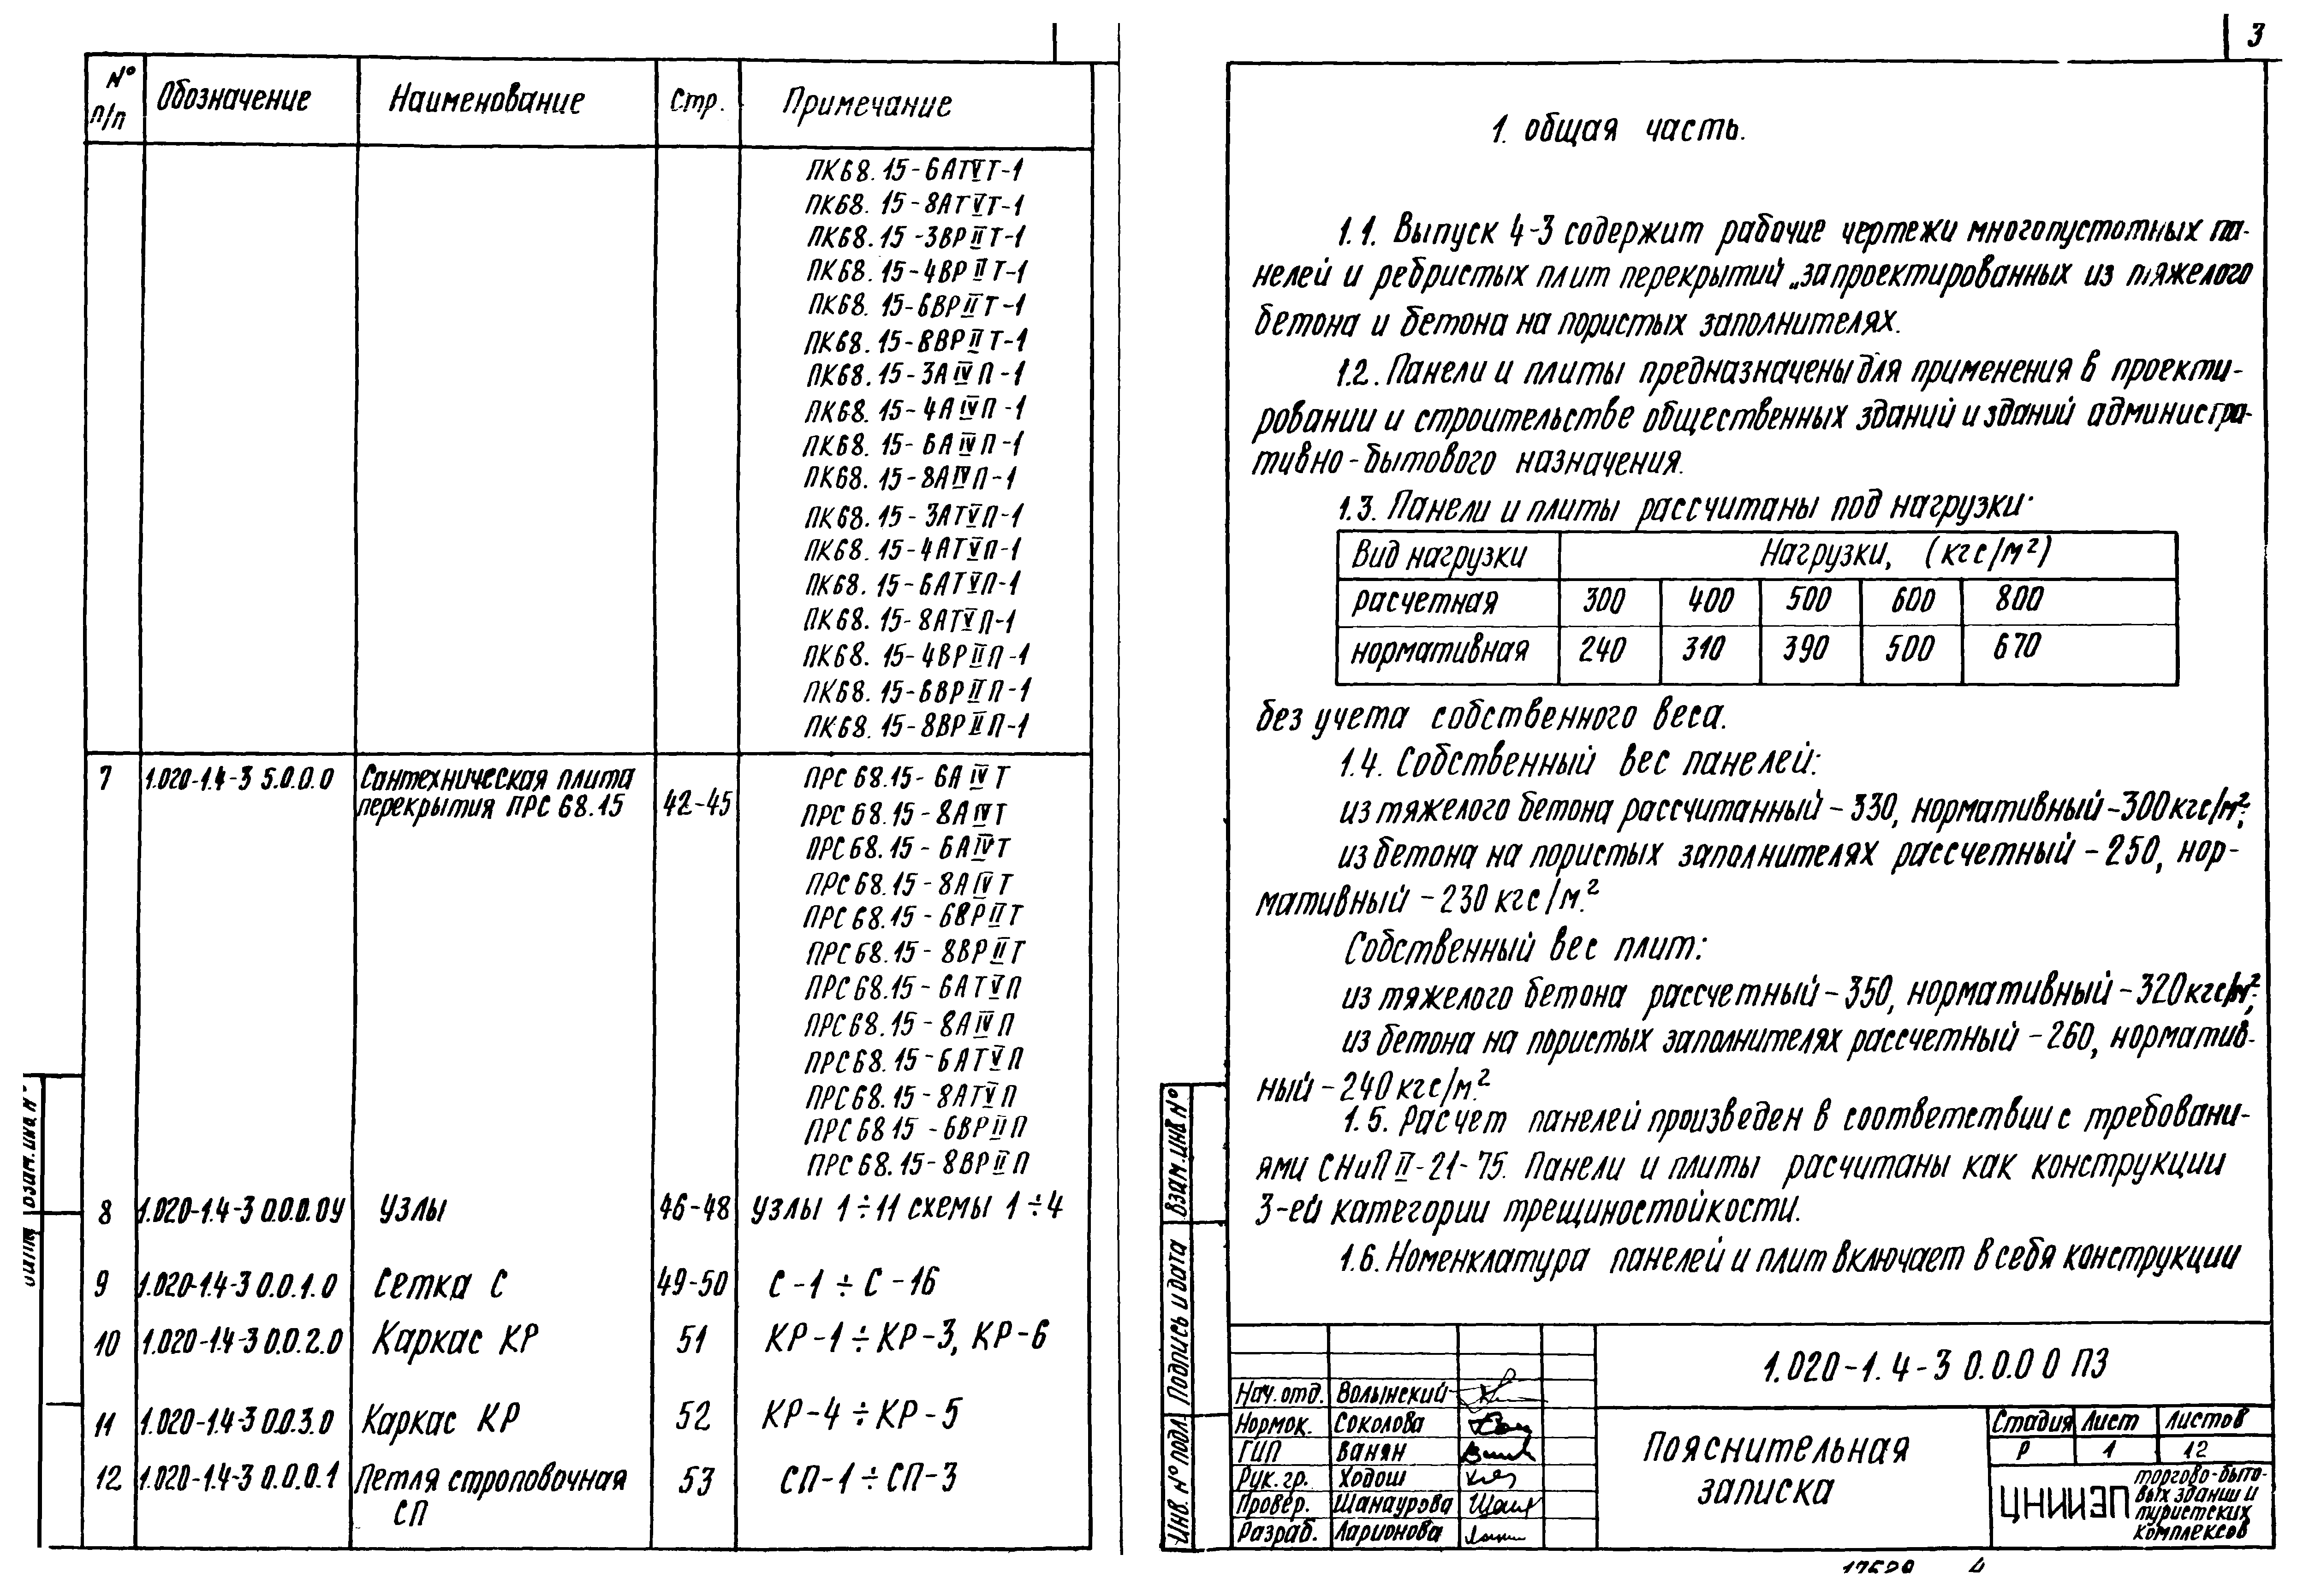 № п/п Обозначение Наименование Стр. Примечание
ПК68. 15-6АТV̅Т-1
ПК68. 15-8АТVТ-1
ПК68. 15-3ВРIIТ-1
ПК68. 15-4ВРIIТ-1
ПК68. 15-6ВРIIТ-1
ПК68. 15-8ВРIIТ-1
ПК68. 15-3АIVП-1
ПК68. 15-4АIVП-1
ПК68. 15-6АIVП-1
ПК68. 15-8АIVП-1
ПК68. 15-3АТVП-1
ПК68. 15-4АТVП-1
ПК68. 15-6АТVП-1
ПК68. 15-8АТVП-1
ПК68. 15-4ВРIIП-1
ПК68. 15-6ВРIIП-1
ПК68. 15-8ВРIIП-1
7 1.020-1.4-3 5.0.0.0 Сантехническая плита
перекрытия ПРС 68.15 42-45
ПРС 68.15-6АIVТ
ПРС 68.15-8АIVТ
ПРС 68.15-6АIVТ
ПРС 68.15-8АIVТ
ПРС 68.15-6ВРIIТ
ПРС 68.15-8ВРIIТ
ПРС 68.15-6АТVП
ПРС 68.15-8АIVП
ПРС 68.15-6АТVП
ПРС 68.15-8АТVП
ПРС 68 15-6ВРIIП
ПРС 68.15-8ВРIIП
8 1.020-1.4-3 0.0.0.0У Узлы 46-48 Узлы 1÷11 схемы 1÷4
9 1.020-1.4-3 0.0.1.0 Сетка С 49-50 С-1÷С-16
10 1.020-1.4-3 0.0.2.0 Каркас КР 51 КР-1÷КР-3, КР-6
11 1.020-1.4-3 0.0.3.0 Каркас КР 52 КР-4÷КР-5
12 1.020-1.4-3 0.0.0.1 Петля строповочная
СП 53 СП-1÷СП-3
Взам.инв.№
3
1. Общая часть.
1.1. Выпуск 4-3 содержит рабочие чертежи многопустотных па-
нелей и ребристых плит перекрытий „запроектированных из тяжелого
бетона и бетона на пористых заполнителях.
1.2. Панели и плиты предназначены для применения в проекти-
ровании и строительстве общественных зданий и зданий администра-
тивно-бытового назначения.
1.3. Панели и плиты рассчитаны под нагрузки:
Вид нагрузки Нагрузки, (кгс/м²)
расчетная 300 400 500 600 800
нормативная 240 310 390 500 670
без учета собственного веса.
1.4. Собственный вес панелей:
из тяжелого бетона рассчитанный-330, нормативный-300кгс/м²;
из бетона на пористых заполнителях рассчетный-250, нор-
мативный-230 кгс/м.²
Собственный вес плит:
из тяжелого бетона рассчетный-350, нормативный-320кгс/м²;
из бетона на пористых заполнителях рассчетный-260, норматив-
ный-240 кгс/м.²
1.5. Расчет панелей произведен в соответствии с требовани-
ями СНиП II-21-75. Панели и плиты расчитаны как конструкции
3-ей категории трещиностойкости.
1.6. Номенклатура панелей и плит включает в себя конструкции
Взам.инв №
Подпись и дата
Инв. № подл.
1.020-1.4-3 0.0.0 0 ПЗ
Нач.отд. Волынский
Нормок. Соколова
ГИП Ванян
Рук.гр. Ходош
Провер. Шанаурова
Разраб. Ларионова
Пояснительная
записка
Стадия Лист Листов
Р 1 12
ЦНИИЭП торгово-быто-
вых зданий и
туристских
комплексов
17529 4